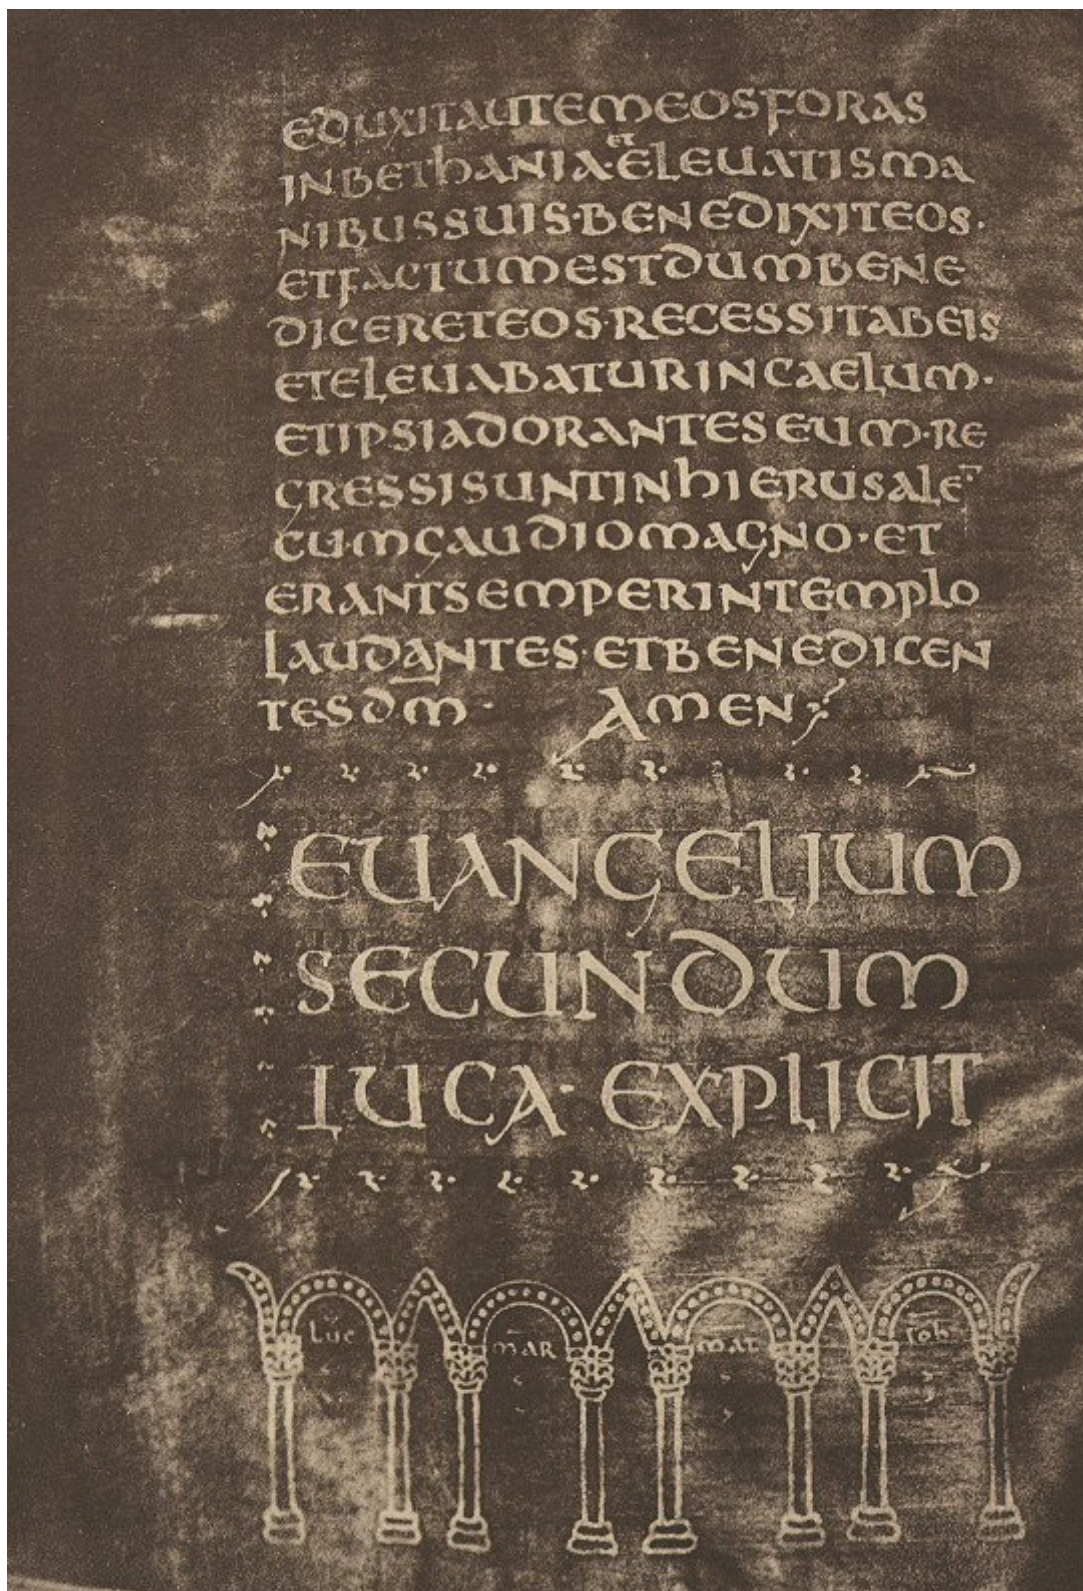 EDUXITAUTEMEOSFORAS
et
INBETHANIA·ELEUATISMA
NIBUSSUIS·BENEDIXITEOS·
ETFACTUMESTDUMBENE
DICERETEOS·RECESSITABEIS
ETELEUABATURINCAELUM·
ETIPSIADORANTESEUM·RE
GRESSISUNTINHIERUSALE̅
CUMGAUDIOMAGNO·ET
ERANTSEMPERINTEMPLO
LAUDANTES·ETBENEDICEN
TESDM· AMEN
EUANGELIUM
SECUNDUM
LUCA·EXPLICIT
Luc MAR MAT Ioh